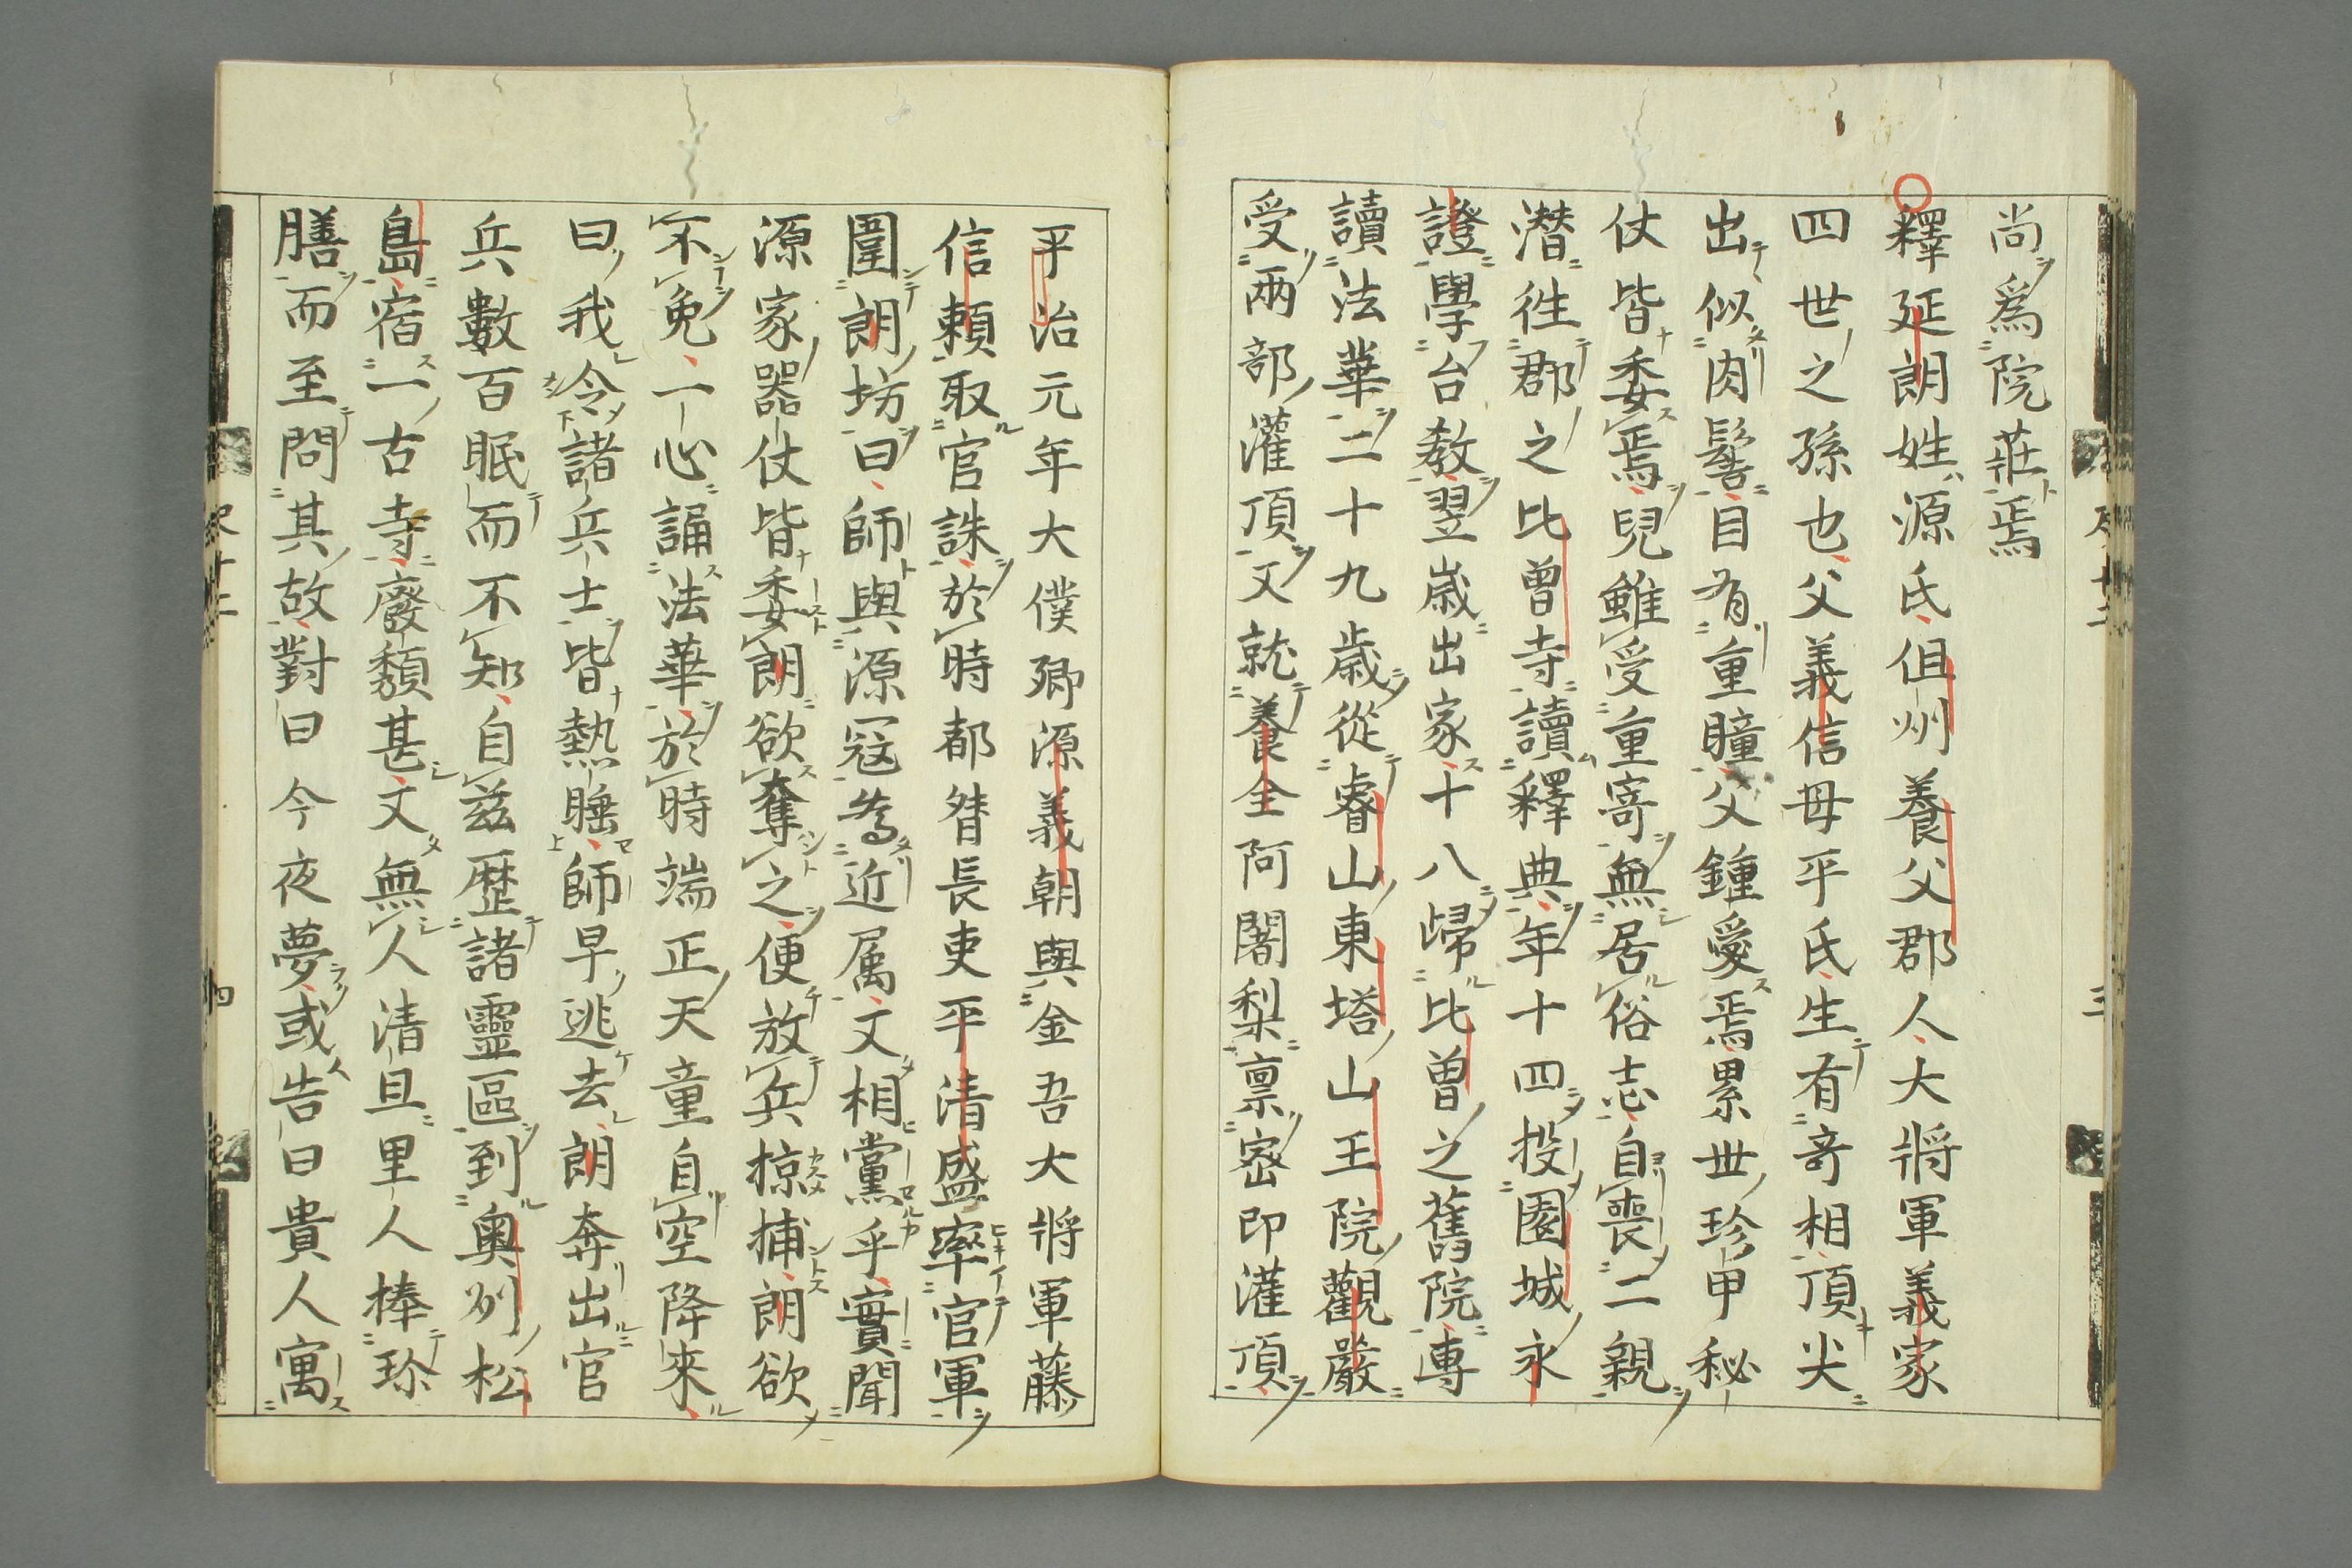 尚爲院莊焉
釋延朗姓源氏但州養父郡人大將軍義家
四世之孫也父義信母平氏生有奇相頂尖
出似肉髻目有重瞳父鍾愛焉累世珍甲秘
仗皆委焉兒雖受重寄無居俗志自喪二親
潛徃郡之比曾寺讀釋典年十四投園城永
證學台教翌歳出家十八歸比曾之舊院專
讀法華二十九歳從睿山東塔山王院觀嚴
受兩部灌頂又就養全阿闍梨禀密印灌頂
平治元年大僕卿源義朝與金吾大將軍藤
信頼取官誅於時都督長吏平清盛率官軍
圍朗坊曰師與源寇爲近属又相黨乎實聞
源家器仗皆委朗欲奪之便放兵掠捕朗欲
不免一心誦法華於時端正天童自空降來
曰我令諸兵士皆熱睡師早逃去朗奔出官
兵數百眠而不知自茲歴諸靈區到奥州松
島宿一古寺廢頽甚又無人清旦里人捧珎
膳而至問其故對曰今夜夢或告曰貴人寓